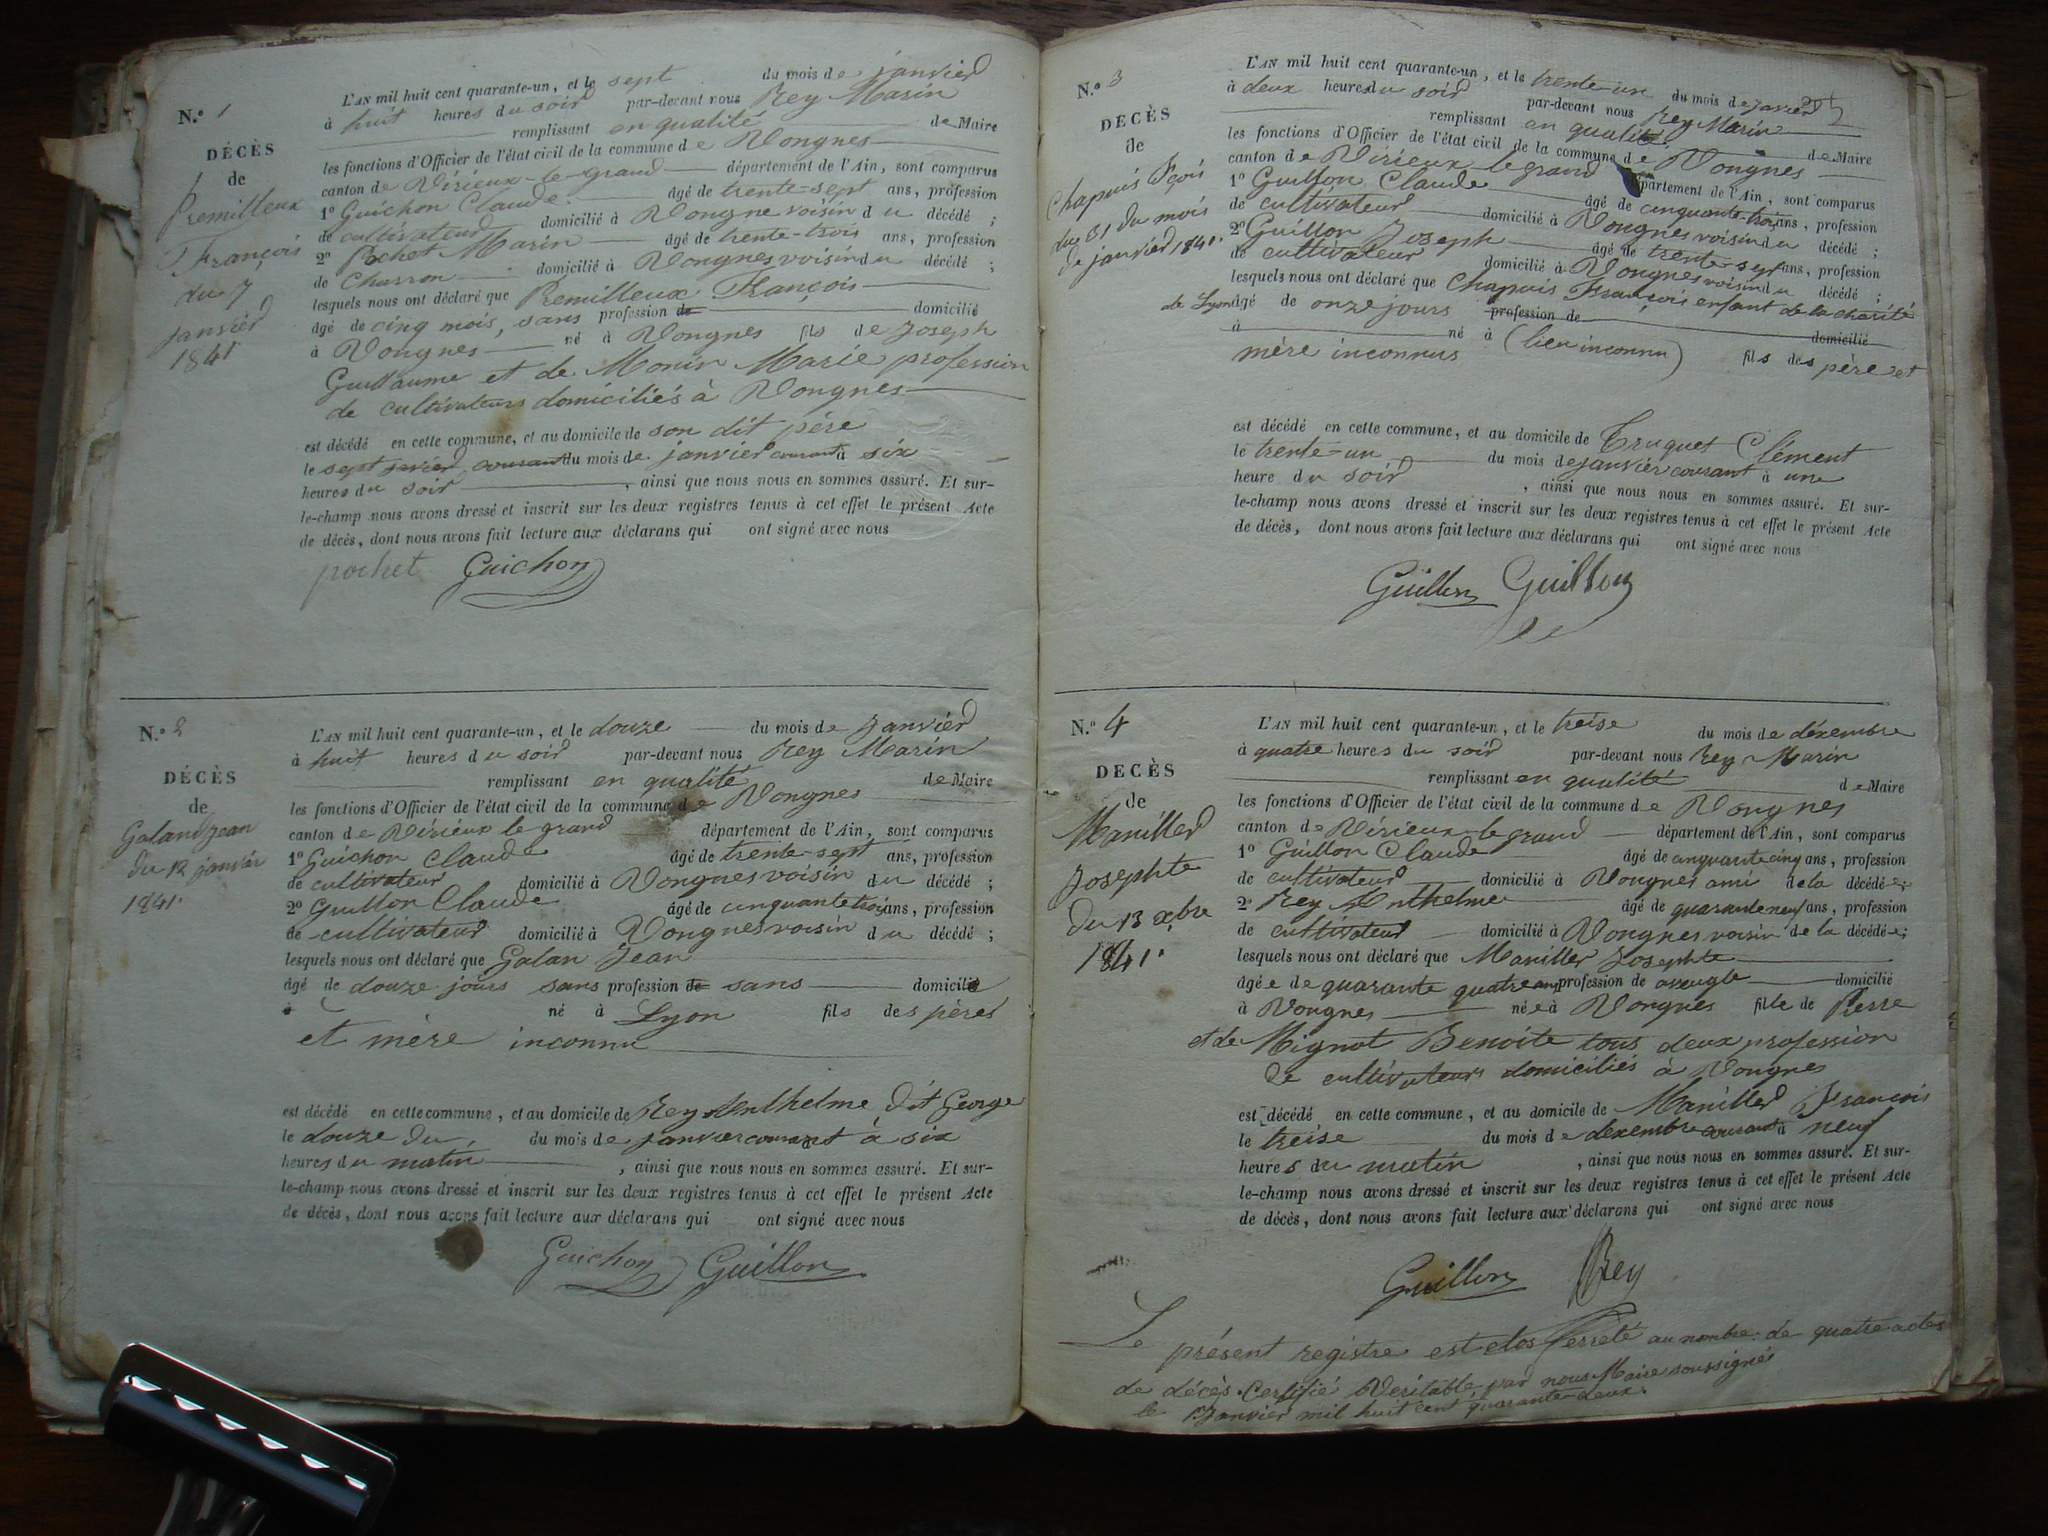 N.° 1
DÉCÈS
de
Premilleux
François
du 7
janvier
1841
L'AN mil huit cent quarante-un, et le sept du mois de janvier
à huit heures du soir par-devant nous Rey Marin
remplissant en qualité de Maire
les fonctions d'Officier de l'état civil de la commune de Vongnes
canton de Virieux-le-grand département de l'Ain, sont comparus
1° Guichon Claude âgé de trente-sept ans, profession
de cultivateur domicilié à Vongne voisin du décédé ;
2° Pochet Marin âgé de trente-trois ans, profession
de Charron domicilié à Vongnes voisin du décédé ;
lesquels nous ont déclaré que Premilleux François
âgé de cinq mois, sans profession de domicilié
à Vongnes né à Vongnes fils de Joseph
Guillaume et de Monin Marie profession
de cultivateurs domiciliés à Vongnes
est décédé en cette commune, et au domicile de son dit père
le sept courant du mois de janvier courant à six
heures du soir , ainsi que nous nous en sommes assuré. Et sur-
le-champ nous avons dressé et inscrit sur les deux registres tenus à cet effet le présent Acte
de décès, dont nous avons fait lecture aux déclarans qui ont signé avec nous
pochet Guichon
N.° 2
DÉCÈS
de
Galand Jean
du 12 janvier
1841.
L'AN mil huit cent quarante-un, et le douze du mois de Janvier
à huit heures du soir par-devant nous Rey Marin
remplissant en qualité de Maire
les fonctions d'Officier de l'état civil de la commune de Vongnes
canton de Virieux le grand département de l'Ain, sont comparus
1° Guichon Claude âgé de trente-sept ans, profession
de cultivateur domicilié à Vongnes voisin du décédé ;
2° Guillon Claude âgé de cinquante trois ans, profession
de cultivateur domicilié à Vongnes voisin du décédé ;
lesquels nous ont déclaré que Galan Jean
âgé de douze jours sans profession de sans domicilié
à né à Lyon fils des pères
et mère inconnu
est décédé en cette commune, et au domicile de Rey Anthelme dit George
le douze du du mois de janvier courant à six
heures du matin , ainsi que nous nous en sommes assuré. Et sur-
le-champ nous avons dressé et inscrit sur les deux registres tenus à cet effet le présent Acte
de décès, dont nous avons fait lecture aux déclarans qui ont signé avec nous
Guichon Guillon
N.° 3
DÉCÈS
de
Chapuis Fçois
du 31 du mois
de janvier 1841.
L'AN mil huit cent quarante-un, et le trente-un du mois de janvier
à deux heures du soir par-devant nous Rey Marin
remplissant en qualité de Maire
les fonctions d'Officier de l'état civil de la commune de Vongnes
canton de Virieux le grand département de l'Ain, sont comparus
1° Guillon Claude âgé de cinquante-trois ans, profession
de cultivateur domicilié à Vongnes voisin du décédé ;
2° Guillon Joseph âgé de trente-sept ans, profession
de cultivateur domicilié à Vongnes voisin du décédé ;
lesquels nous ont déclaré que Chapuis François enfant de la charité
de Lyon âgé de onze jours profession de domicilié
à né à (lieu inconnu) fils des père et
mère inconnus
est décédé en cette commune, et au domicile de Truquet Clément
le trente-un du mois de janvier courant à une
heure du soir , ainsi que nous nous en sommes assuré. Et sur-
le-champ nous avons dressé et inscrit sur les deux registres tenus à cet effet le présent Acte
de décès, dont nous avons fait lecture aux déclarans qui ont signé avec nous
Guillon Guillon
N.° 4
DECÈS
de
Maniller
Josephte
du 13 xbre
1841.
L'AN mil huit cent quarante-un, et le treise du mois de décembre
à quatre heures du soir par-devant nous Rey Marin
remplissant en qualité de Maire
les fonctions d'Officier de l'état civil de la commune de Vongnes
canton de Virieux-le-grand département de l'Ain, sont comparus
1° Guillon Claude âgé de cinquante cinq ans, profession
de cultivateur domicilié à Vongnes ami de la décédée ;
2° Rey Anthelme âgé de quarante neuf ans, profession
de cultivateur domicilié à Vongnes voisin de la décédée ;
lesquels nous ont déclaré que Maniller Josephte
âgée de quarante quatre ans profession de aveugle domicilié
à Vongnes née à Vongnes fille de Pierre
et de Mignot Benoite tous deux profession
de cultivateurs domiciliés à Vongnes
est décédé en cette commune, et au domicile de Maniller François
le treise du mois de décembre courant à neuf
heures du matin , ainsi que nous nous en sommes assuré. Et sur-
le-champ nous avons dressé et inscrit sur les deux registres tenus à cet effet le présent Acte
de décès, dont nous avons fait lecture aux déclarans qui ont signé avec nous
Guillon Rey
Le présent registre est clos et arreté au nombre de quatre actes
de décès. Certifié Véritable par nous Maire soussignés
le Janvier mil huit cent quarante-deux.